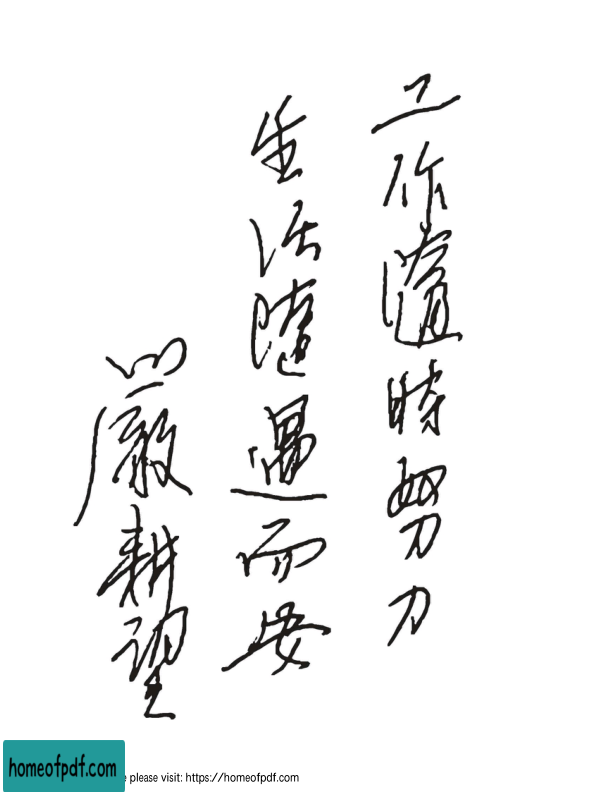 工作隨時努力
生活隨遇而安
嚴耕望
homeofpdf.com
e please visit: https://homeofpdf.com